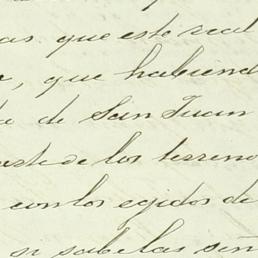 as que esto real
, que habiend
a de San Juan
arte de los terreno
con los egidos de
si sabe las señ